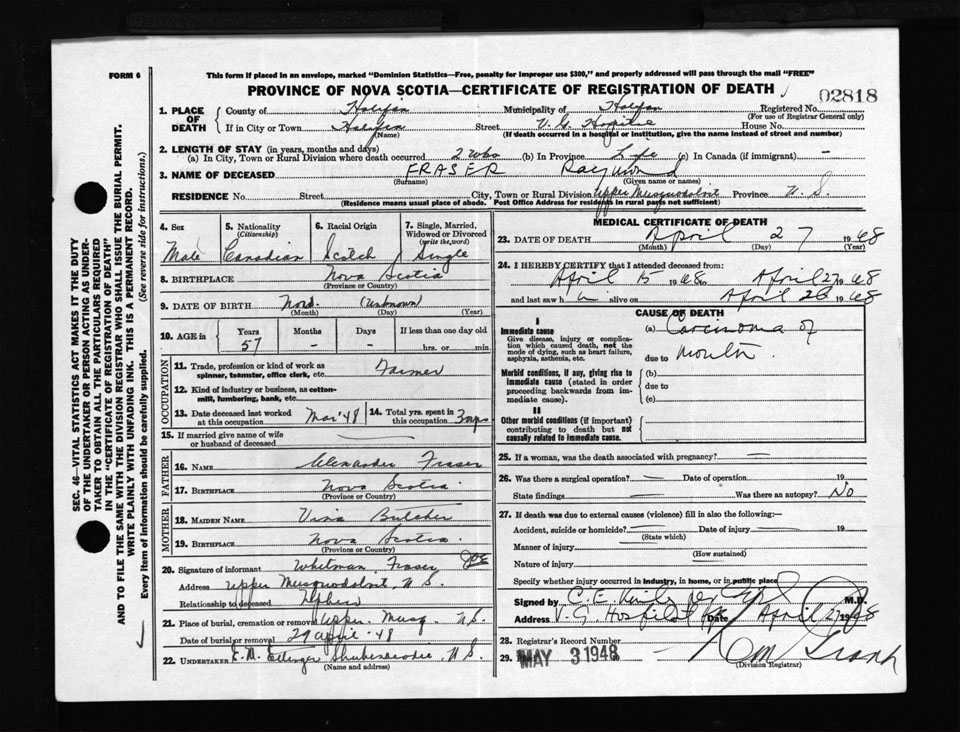 FORM 6
This form if placed in an envelope, marked "Dominion Statistics—Free, penalty for improper use $300," and properly addressed will pass through the mail "FREE"
PROVINCE OF NOVA SCOTIA—CERTIFICATE OF REGISTRATION OF DEATH
02818
1. PLACE OF DEATH
County of Halifax Municipality of Halifax Registered No.
(For use of Registrar General only)
If in City or Town Halifax Street V. G. Hospital House No.
(Name) (If death occurred in a hospital or institution, give the name instead of street and number)
2. LENGTH OF STAY (in years, months and days)
(a) In City, Town or Rural Division where death occurred 2 wks (b) In Province Life (c) In Canada (if immigrant) —
3. NAME OF DECEASED FRASER Raymond
(Surname) (Given name or names)
RESIDENCE No. Street City, Town or Rural Division Upper Musquodoboit Province N. S.
(Residence means usual place of abode. Post Office Address for residents in rural parts not sufficient)
4. Sex
Male
5. Nationality
(Citizenship)
Canadian
6. Racial Origin
Scotch
7. Single, Married, Widowed or Divorced
(write the word)
Single
8. BIRTHPLACE Nova Scotia
(Province or Country)
9. DATE OF BIRTH (Unknown)
(Month) (Day) (Year)
10. AGE in
Years Months Days If less than one day old
57 – – hrs. or min.
OCCUPATION
11. Trade, profession or kind of work as spinner, teamster, office clerk, etc. Farmer
12. Kind of industry or business, as cotton-mill, lumbering, bank, etc.
13. Date deceased last worked at this occupation Mar '48
14. Total yrs. spent in this occupation
15. If married give name of wife or husband of deceased —
FATHER
16. NAME Alexander Fraser
17. BIRTHPLACE Nova Scotia
(Province or Country)
MOTHER
18. MAIDEN NAME Butcher
19. BIRTHPLACE Nova Scotia
(Province or Country)
20. Signature of informant Whitman Fraser
Address Upper Musquodoboit, N. S.
Relationship to deceased Nephew
21. Place of burial, cremation or removal Upper Musq. N.S.
Date of burial or removal 29 April '48
22. UNDERTAKER E. M. Ettinger Shubenacadie, N. S.
(Name and address)
MEDICAL CERTIFICATE OF DEATH
23. DATE OF DEATH April 27 1948
(Month) (Day) (Year)
24. I HEREBY CERTIFY that I attended deceased from:
April 15 1948 to April 27 1948
and last saw h im alive on April 26 1948
CAUSE OF DEATH
I
Immediate cause
Give disease, injury or complication which caused death, not the mode of dying, such as heart failure, asphyxia, asthenia, etc.
(a) Carcinoma of
due to mouth
Morbid conditions, if any, giving rise to immediate cause (stated in order proceeding backwards from immediate cause).
(b)
due to
(c)
II
Other morbid conditions (if important) contributing to death but not causally related to immediate cause.
25. If a woman, was the death associated with pregnancy? —
26. Was there a surgical operation? — Date of operation 19
State findings Was there an autopsy? No
27. If death was due to external causes (violence) fill in also the following:—
Accident, suicide or homicide? Date of injury 19
(State which)
Manner of injury
(How sustained)
Nature of injury
Specify whether injury occurred in industry, in home, or in public place
Signed by C. E. M.D.
Address V. G. Hospital Date April 27 1948
28. Registrar's Record Number
29. MAY 3 1948
(Division Registrar)
SEC. 46—VITAL STATISTICS ACT MAKES IT THE DUTY
OF THE UNDERTAKER OR PERSON ACTING AS UNDER-
TAKER TO OBTAIN ALL THE PARTICULARS REQUIRED
IN THE "CERTIFICATE OF REGISTRATION OF DEATH"
AND TO FILE THE SAME WITH THE DIVISION REGISTRAR WHO SHALL ISSUE THE BURIAL PERMIT.
WRITE PLAINLY WITH UNFADING INK. THIS IS A PERMANENT RECORD.
Every item of information should be carefully supplied. (See reverse side for instructions.)